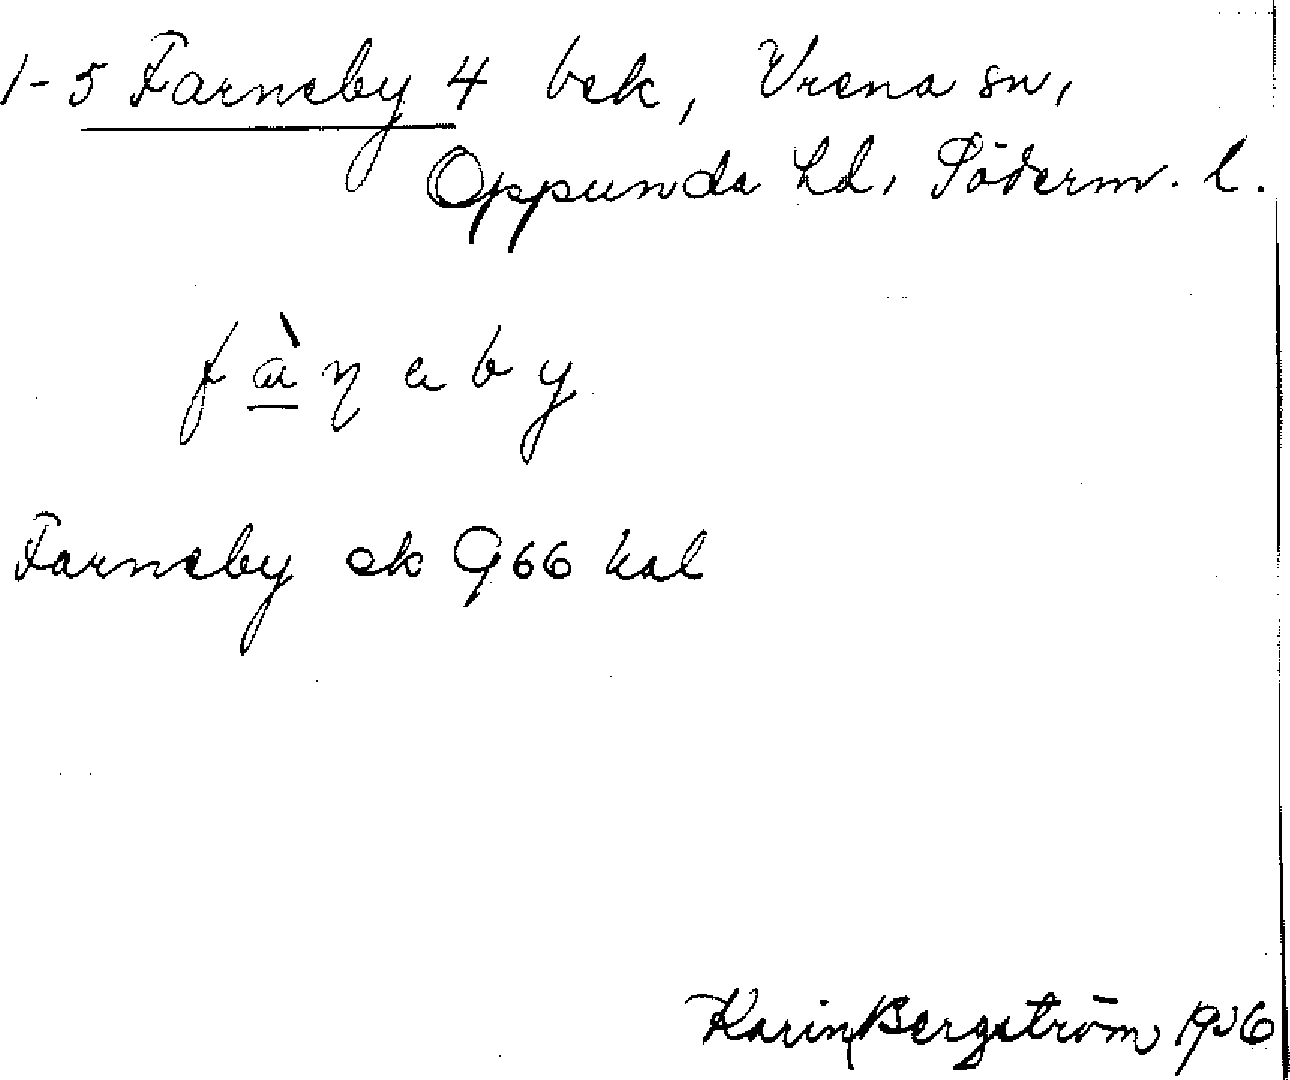 1-5 Farneby 4 bek, Vrena sn,
Oppunda hd, Söderm. l.
fà̱ɳ a b y
Farneby ek 966 kal
Karin Bergström